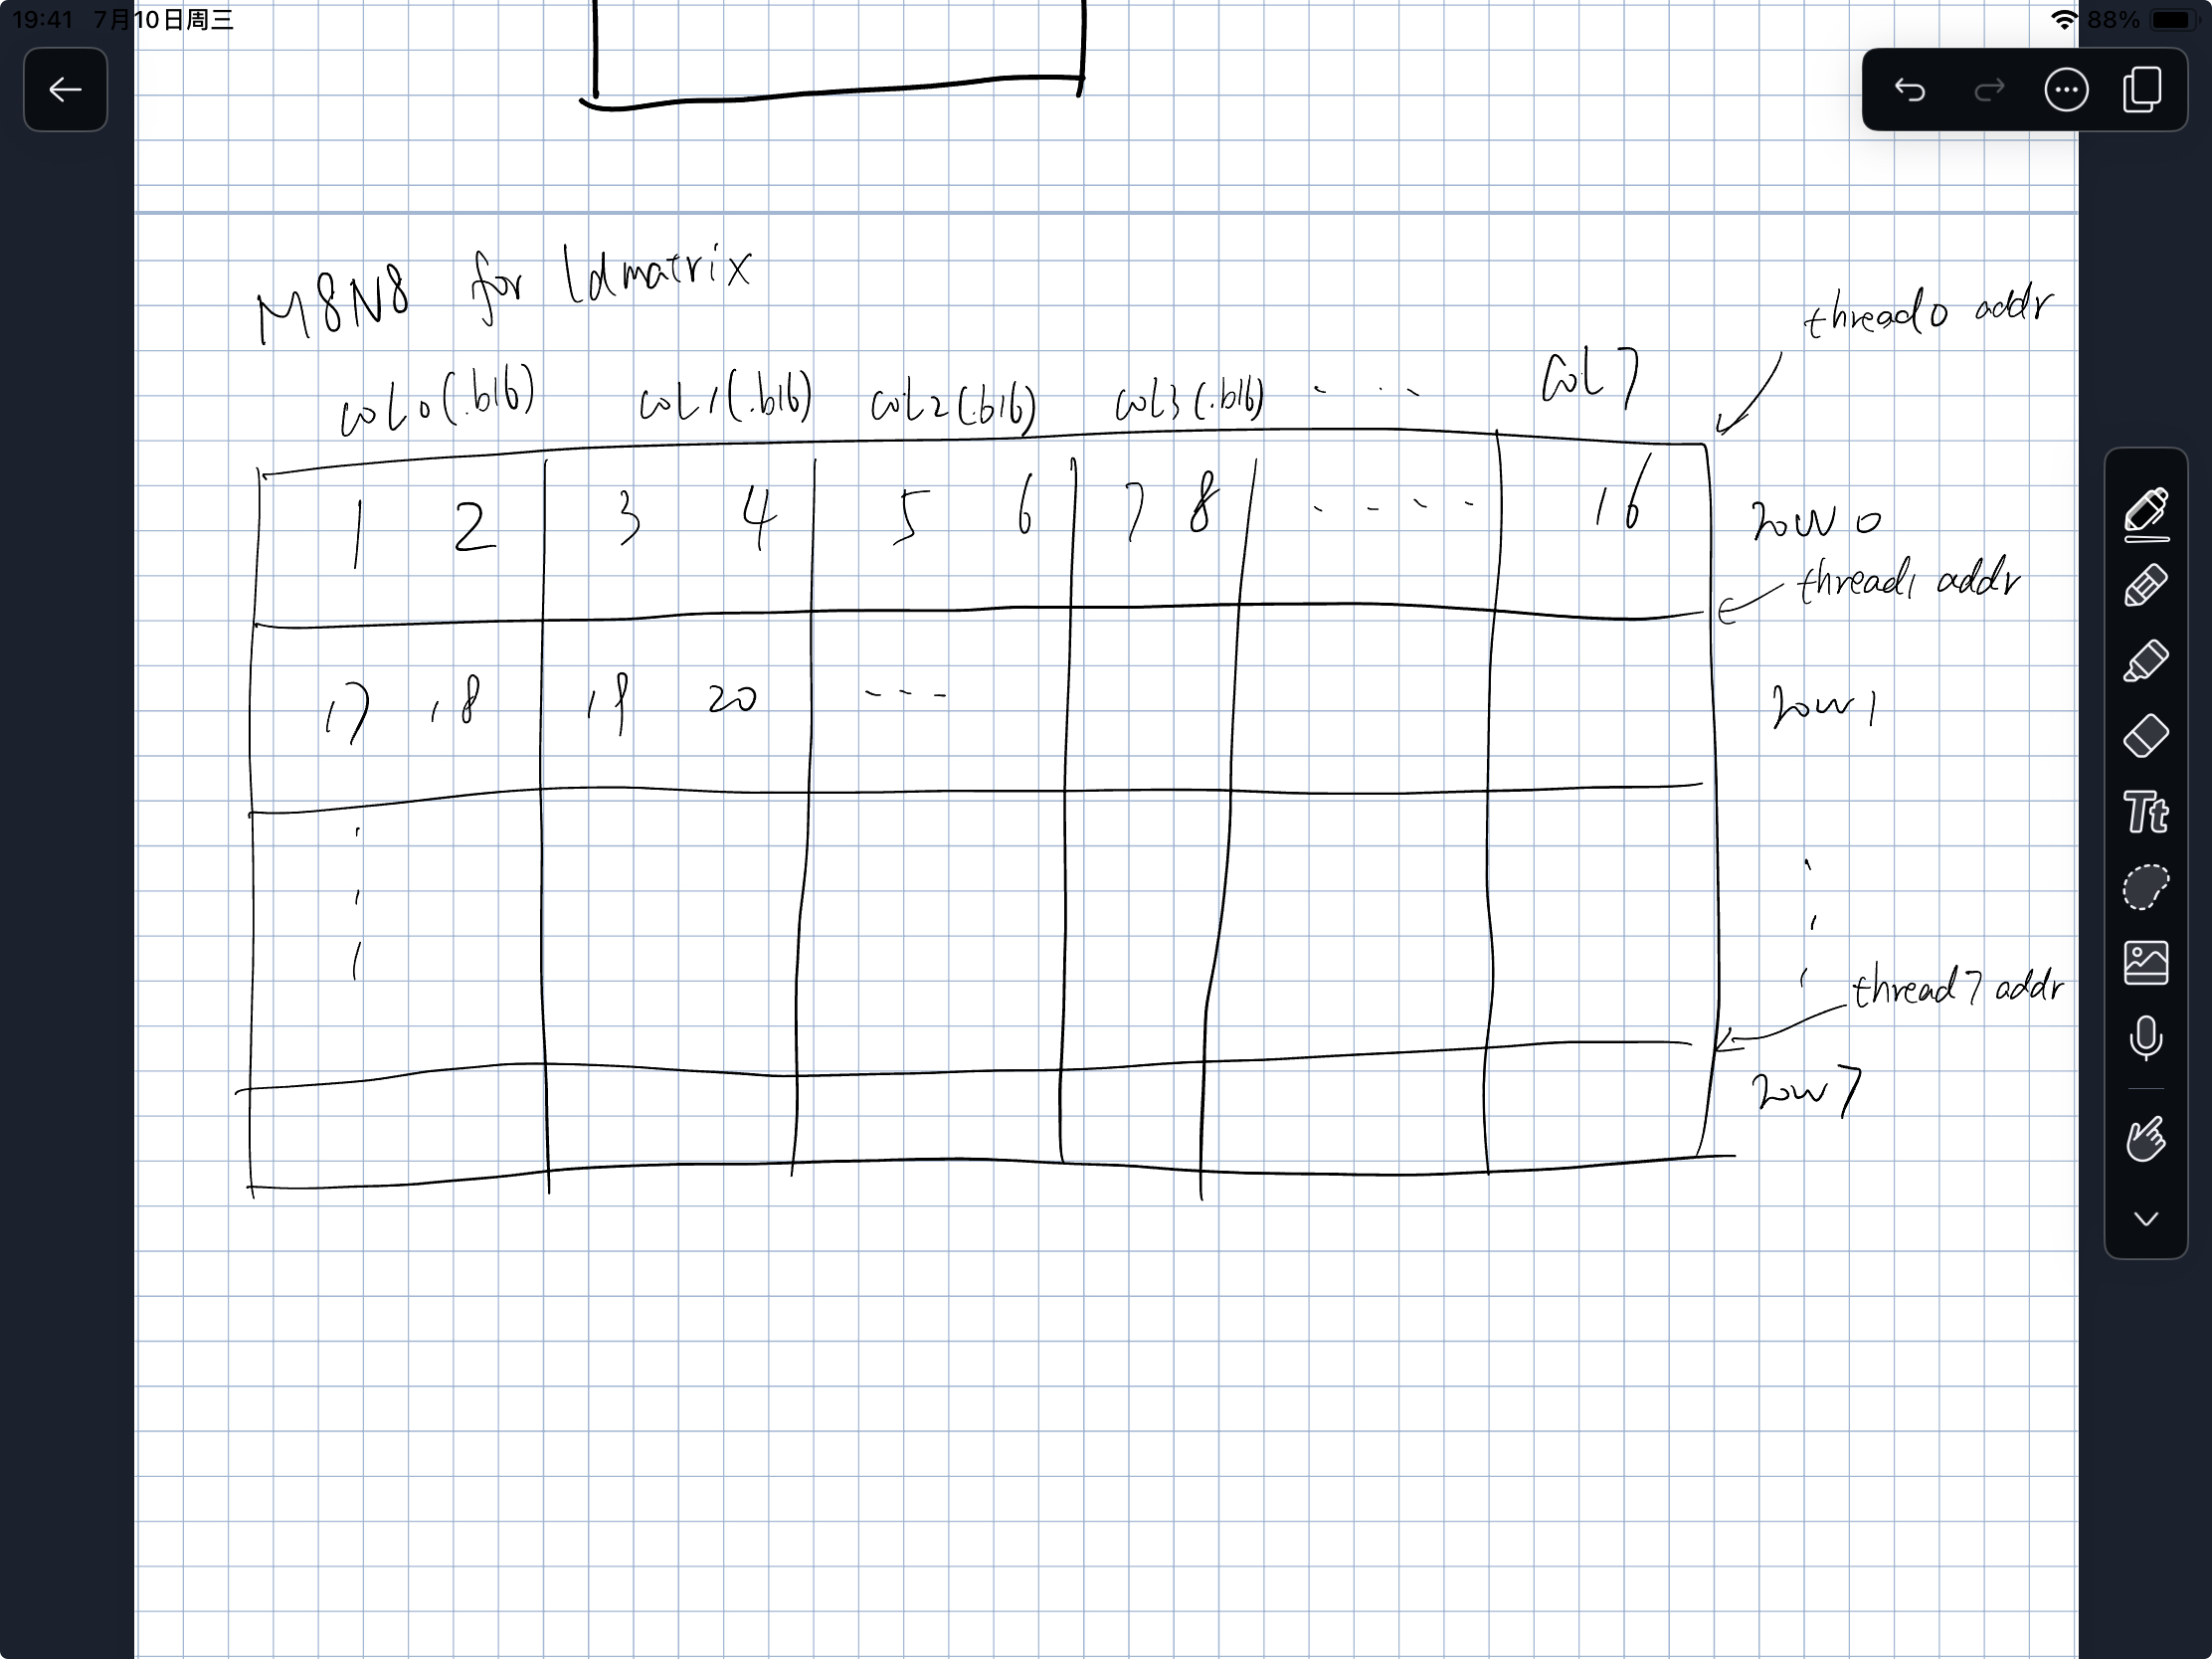 19:41 7月10日周三 88%
M8N8 for ldmatrix
thread0 addr
col0(.b16) col1(.b16) col2(.b16) col3(.b16) . . . col7
1 2 3 4 5 6 7 8 - - - - 16 row 0
thread1 addr
17 18 19 20 --- row 1
thread7 addr
row 7
Tt